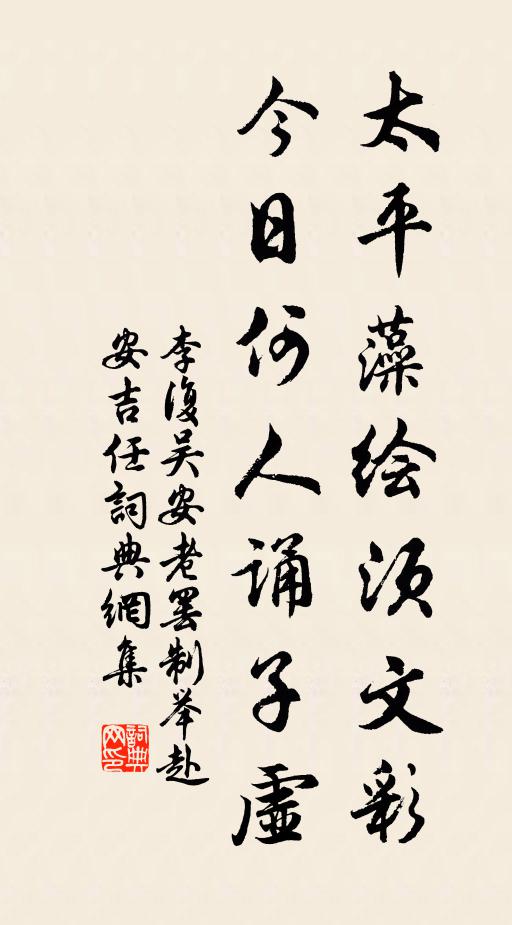 太平藻绘须文彩
今日何人诵子虚
李復吴安老罢制举赴
安吉任詞典網集
詞典网印